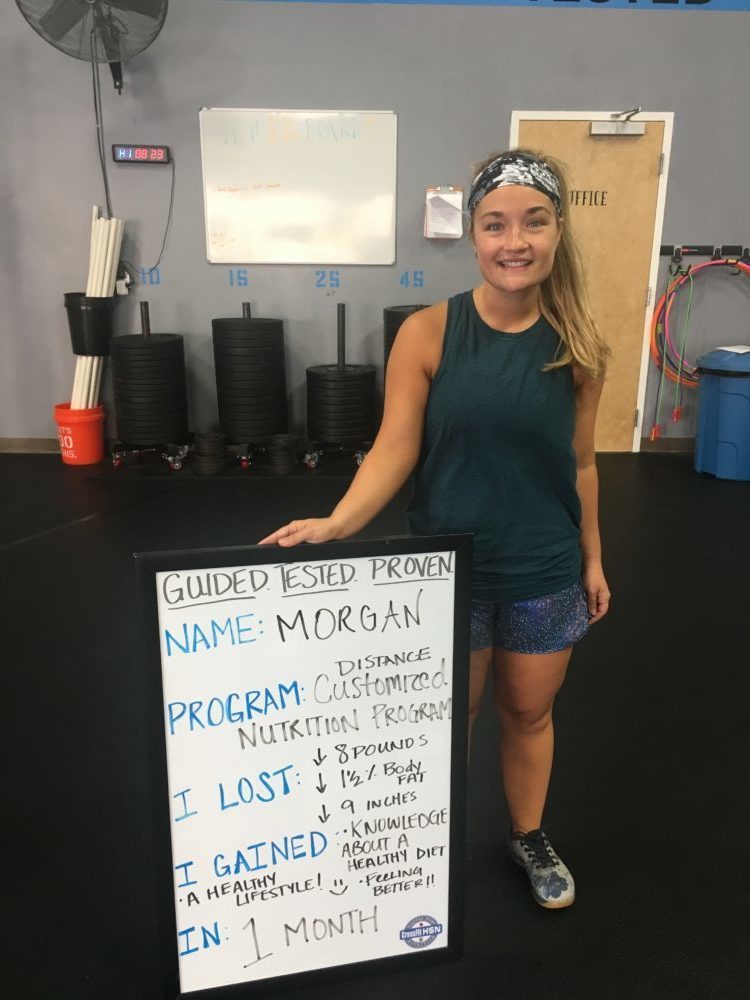 TESTED
H1 08 23
OFFICE
10 15 25 45
GUIDED. TESTED. PROVEN.
NAME: MORGAN
DISTANCE
PROGRAM: Customized
NUTRITION PROGRAM
I LOST: ↓ 8 POUNDS
↓ 1½% Body
FAT
↓ 9 INCHES
I GAINED •KNOWLEDGE
ABOUT A
HEALTHY DIET
•A HEALTHY
LIFESTYLE! •FEELING
BETTER!!
IN: 1 MONTH
CrossFit HSN